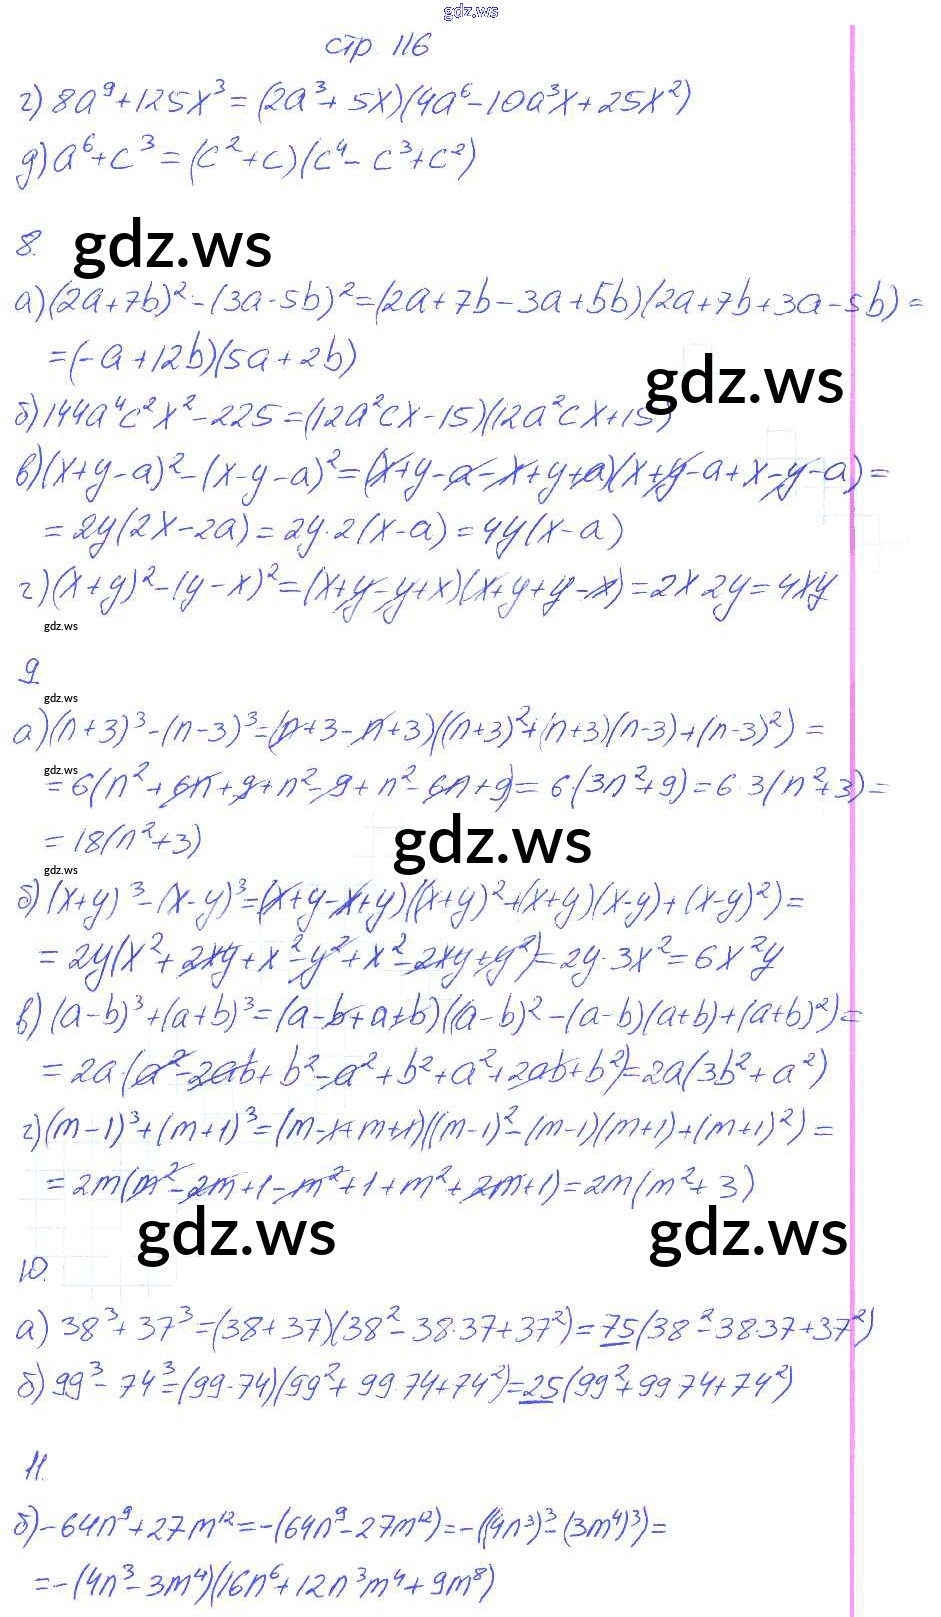 gdz.ws
стр 116
г) 8a⁹+125x³=(2a³+5x)(4a⁶-10a³x+25x²)
д) a⁶+c³=(c²+c)(c⁴-c³+c²)
8.
gdz.ws
а) (2a+7b)²-(3a-5b)²=(2a+7b-3a+5b)(2a+7b+3a-5b)=
=(-a+12b)(5a+2b)
gdz.ws
б) 144a⁴c²x²-225=(12a²cx-15)(12a²cx+15)
в) (x+y-a)²-(x-y-a)²=(x+y-a-x+y+a)(x+y-a+x-y-a)=
=2y(2x-2a)=2y·2(x-a)=4y(x-a)
г) (x+y)²-(y-x)²=(x+y-y+x)(x+y+y-x)=2x·2y=4xy
gdz.ws
9
gdz.ws
а) (n+3)³-(n-3)³=(n+3-n+3)((n+3)²+(n+3)(n-3)+(n-3)²)=
gdz.ws
=6(n²+6n+9+n²-9+n²-6n+9)=6·(3n²+9)=6·3(n²+3)=
=18(n²+3)
gdz.ws
gdz.ws
б) (x+y)³-(x-y)³=(x+y-x+y)((x+y)²+(x+y)(x-y)+(x-y)²)=
=2y(x²+2xy+x²-y²+x²-2xy+y²)=2y·3x²=6x²y
в) (a-b)³+(a+b)³=(a-b+a+b)((a-b)²-(a-b)(a+b)+(a+b)²)=
=2a·(a²-2ab+b²-a²+b²+a²+2ab+b²)=2a(3b²+a²)
г) (m-1)³+(m+1)³=(m-1+m+1)((m-1)²-(m-1)(m+1)+(m+1)²)=
=2m(m²-2m+1-m²+1+m²+2m+1)=2m(m²+3)
gdz.ws gdz.ws
10.
а) 38³+37³=(38+37)(38²-38·37+37²)=75(38²-38·37+37²)
б) 99³-74³=(99-74)(99²+99·74+74²)=25(99²+99·74+74²)
11.
б) -64n⁹+27m¹²=-(64n⁹-27m¹²)=-((4n³)³-(3m⁴)³)=
=-(4n³-3m⁴)(16n⁶+12n³m⁴+9m⁸)